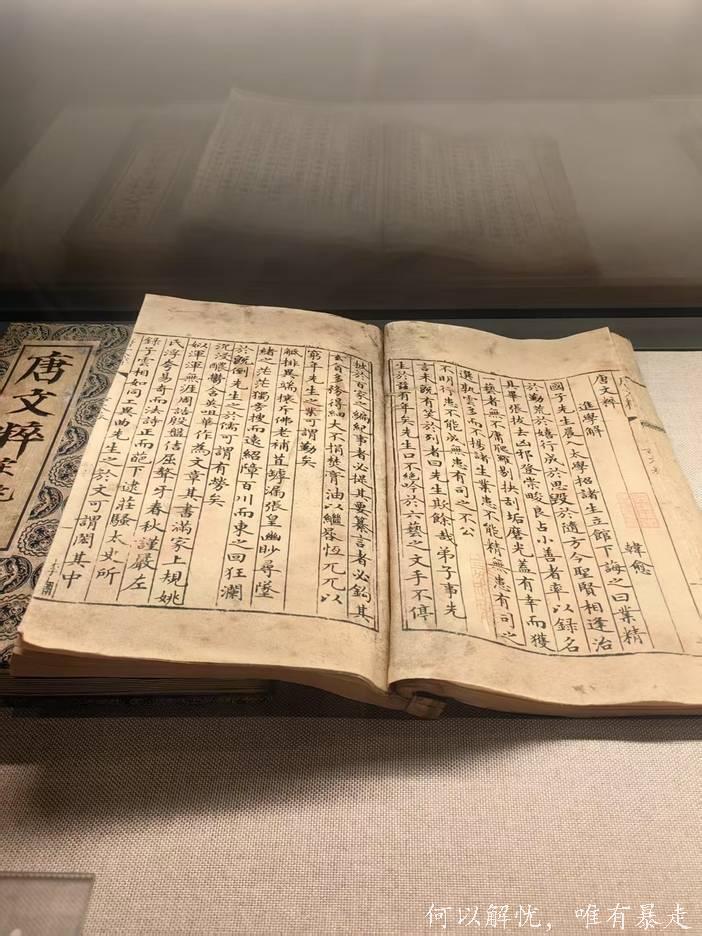 唐文粹
進學解
韓愈
國子先生晨入太學招諸生立館下誨之曰業精
於勤荒於嬉行成於思毀於隨方今聖賢相逢治
具畢張拔去凶邪登崇畯良占小善者率以錄名
藝者無不庸爬羅剔抉刮垢磨光蓋有幸而獲
選孰云多而不揚諸生業患不能精無患有司之
不明行患不能成無患有司之不公
言未既有笑於列者曰先生欺餘哉弟子事先
生於茲有年矣先生口不絕吟於六藝之文手不停
披於百家之編紀事者必提其要纂言者必鈎其
玄貪多務得細大不捐焚膏油以繼晷恆兀兀以
窮年先生之業可謂勤矣
觝排異端攘斥佛老補苴罅漏張皇幽眇尋墜
緒之茫茫獨旁搜而遠紹障百川而東之回狂瀾
於既倒先生之於儒可謂有勞矣
沉浸醲鬱含英咀華作為文章其書滿家上規姚
姒渾渾無涯周誥殷盤佶屈聱牙春秋謹嚴左
氏浮夸易奇而法詩正而葩下逮莊騷太史所
錄子雲相如同工異曲先生之於文可謂閎其中
唐文粹
何以解忧，唯有暴走